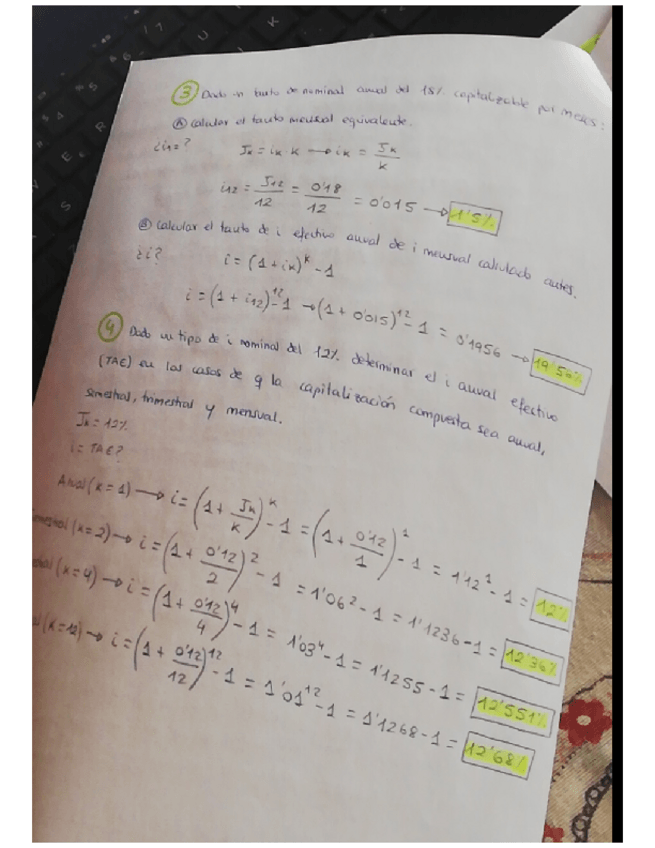 ③ Dado un tanto de nominal anual del 18% capitalizable por meses:
Ⓐ Calcular el tanto mensual equivalente.
¿i12? Jk = ik · k → ik = Jk/k
i12 = J12/12 = 0'18/12 = 0'015 → 1'5%
Ⓑ Calcular el tanto de i efectivo anual de i mensual calculado antes.
¿i? i = (1 + ik)^k - 1
i = (1 + i12)^12 - 1 → (1 + 0'015)^12 - 1 = 0'1956 → 19'56%
④ Dado un tipo de i nominal del 12% determinar el i anual efectivo
(TAE) en los casos de q la capitalización compuesta sea anual,
semestral, trimestral y mensual.
Jk = 12%
i = TAE?
Anual (k = 1) → i = (1 + Jk/k)^k - 1 = (1 + 0'12/1)^1 - 1 = 1'12^1 - 1 = 12%
(k = 2) → i = (1 + 0'12/2)^2 - 1 = 1'06^2 - 1 = 1'1236 - 1 = 12'36%
(k = 4) → i = (1 + 0'12/4)^4 - 1 = 1'03^4 - 1 = 1'1255 - 1 = 12'551%
(k = 12) → i = (1 + 0'12/12)^12 - 1 = 1'01^12 - 1 = 1'1268 - 1 = 12'68%